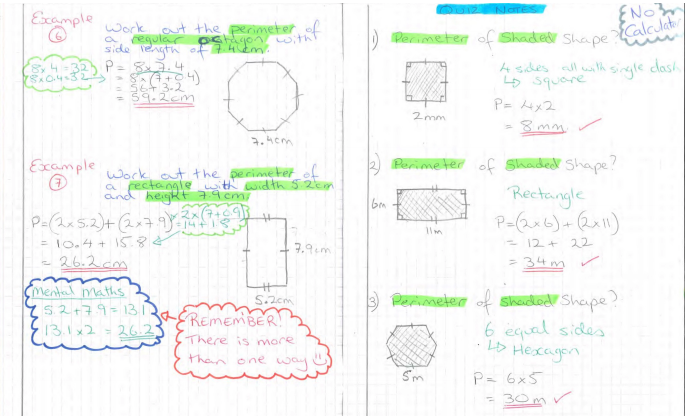 Example
6
Work out the perimeter of
a regular octagon with
side length of 7.4cm.
8x4=32
8x0.4=3.2
P = 8x7.4
= 8x(7+0.4)
= 56+3.2
= 59.2cm
7.4cm
Example
7
Work out the perimeter of
a rectangle with width 5.2cm
and height 7.9cm
P=(2x5.2)+(2x7.9)
= 10.4+15.8
= 26.2cm
2x(7+0.9)
=14+1.8
7.9cm
5.2cm
Mental Maths
5.2+7.9=13.1
13.1x2=26.2
REMEMBER!
There is more
than one way
Quiz Notes
No
Calculator
1) Perimeter of Shaded Shape?
4 sides all with single dash
↳ Square
2mm
P= 4x2
= 8mm ✓
2) Perimeter of Shaded Shape?
Rectangle
6m
11m
P=(2x6)+(2x11)
= 12 + 22
= 34m ✓
3) Perimeter of Shaded Shape?
6 equal sides
↳ Hexagon
5m
P= 6x5
= 30m ✓